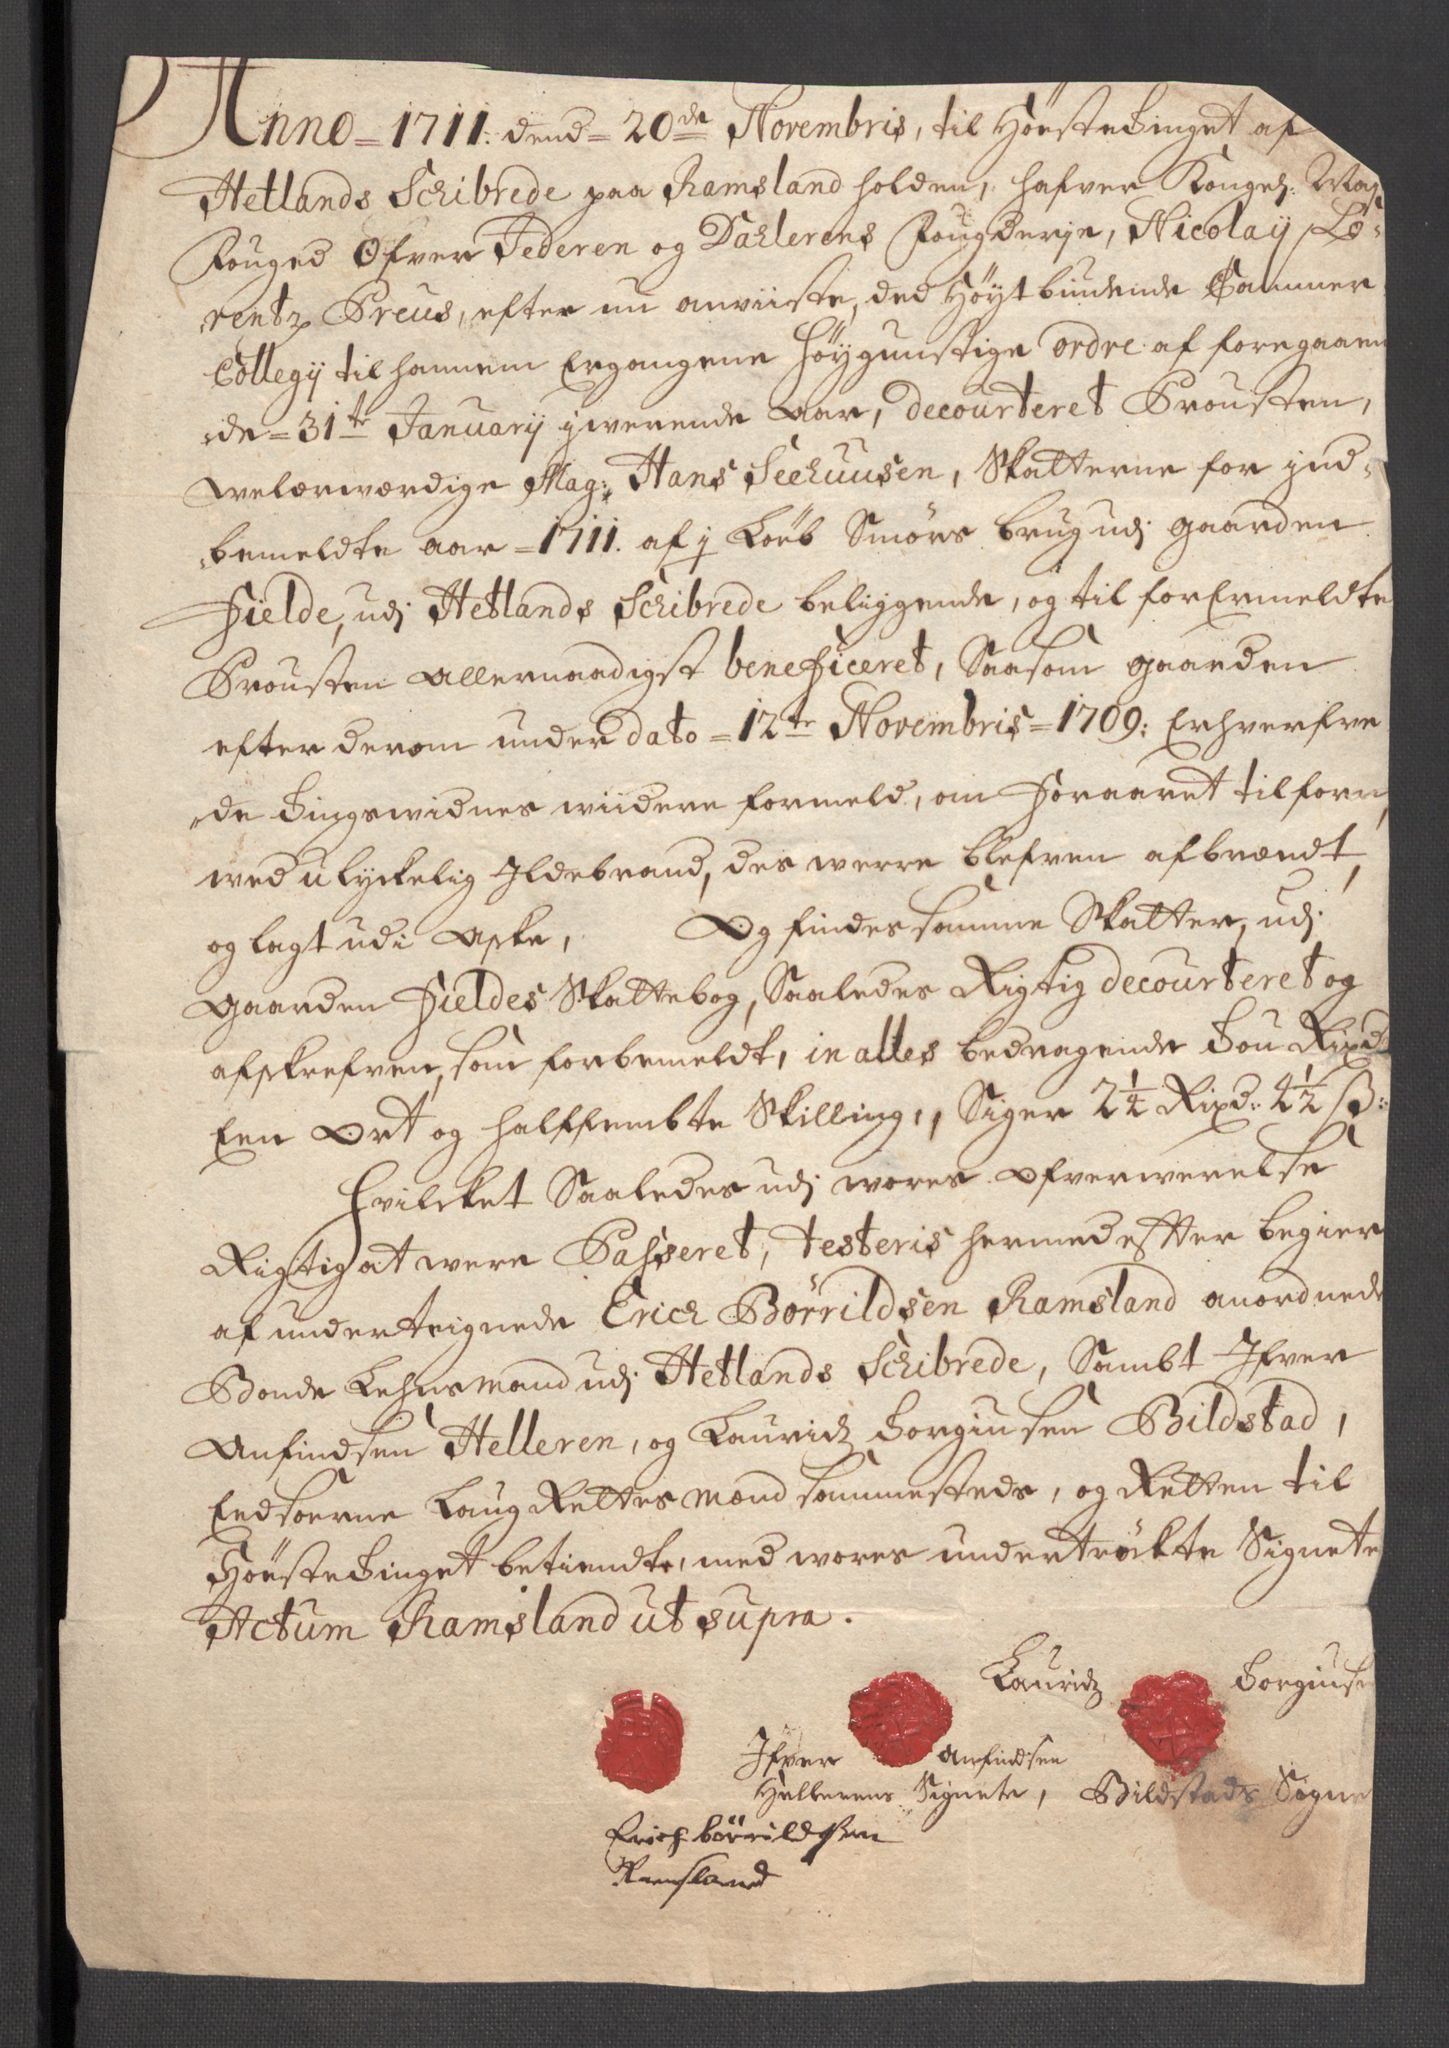 Anno = 1711. dend = 20de Novembris, til Høste Tinget af
Hetlands Schibrede paa Ramsland holden, hafver Kongel: May
Fouged Ofver Jederen og Dahlerens Fougderje, Nicolaij Lo-
rentz Preus, efter nu anviiste, ded Høyt biudende Cammer
Collegij til hannem Ergangene høygunstige ordre af foregaaen
de = 31te Januarij jwerende Aar, decourteret Prousten,
welærwærdige Mag: Hans Seehuusen, Skatterne for jnd-
bemeldte aar = 1711. af j Løb Smørs brug udj gaarden
Fielde, udj Hetlands Schibrede beliggende, og til forErmeldte
Prousten allernaadigst beneficeret, Saasom gaarden
efter derom under dato = 12te Novembris = 1709: Erhverfve
de Tingswidnes wiidere formeld, om Foraaret tilforn,
wed ulyckelig Jldebrand, des werre blefven afbrændt,
og lagt udi Aske, Og findes samme Skatter, udj
gaarden Fieldes Skattebog, Saaledes Rigtig decourteret og
afskrefven, som forbemeldt, in alles bedragende Tou Rixd
Een Ort og halffembte Skilling, Siger 2 1/4 Rixd: 4 1/2 ß:
Hvilcket Saaledes udj wores ofverwerelse
Rigtig at were Passeret, testeris hermed efter begier
af underteignede Erich Børrildsen Ramsland anordnede
Bonde Lehnsmand udj Hetlands Schibrede, Sambt Jfver
Anfindsen Helleren, og Lauridz Torgiusen Bildstad,
Eedsoerne Laug Rettes mænd sammesteds, og Retten til
Høste Tinget betiendte, med wores undertrøkte Signete
Actum Ramsland ut supra.
Lauridz Torgiuse
Jfver Anfindsen
Hellerens Signete, Bildstads Signe
Erich børrildsen
Ramsland